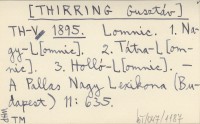 [THIRRING Gusztáv]
TH-V 1895. Lomnic. 1. Na-
gy-L[omnic]. 2. Tátra-L[om-
nic]. 3. Holló-L[omnic]. -
A Pallas Nagy Lexikona (Bu-
dapest) 11: 635.
TM